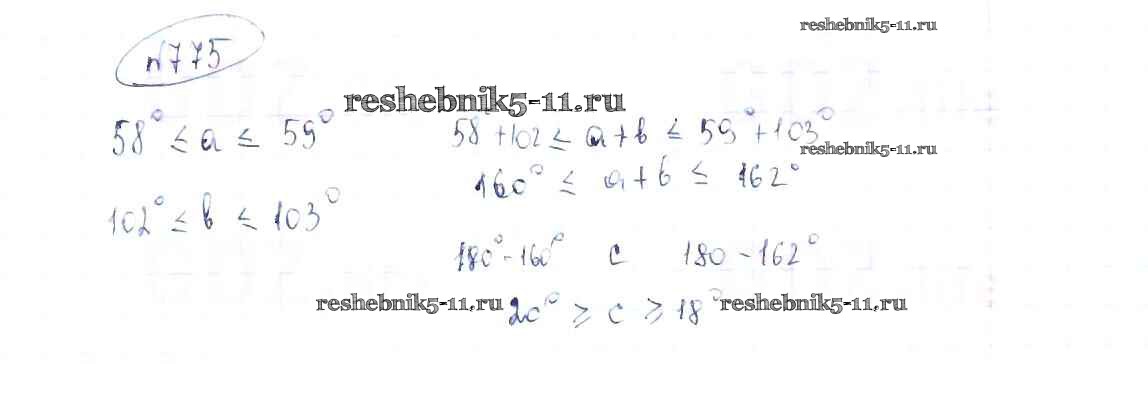 reshebnik5-11.ru
№775
reshebnik5-11.ru
58° ≤ a ≤ 59°
58° + 102 ≤ a + b ≤ 59° + 103°
reshebnik5-11.ru
160° ≤ a + b ≤ 162°
102° ≤ b ≤ 103°
180° - 160° c 180 - 162°
reshebnik5-11.ru 20° ≥ c ≥ 18° reshebnik5-11.ru